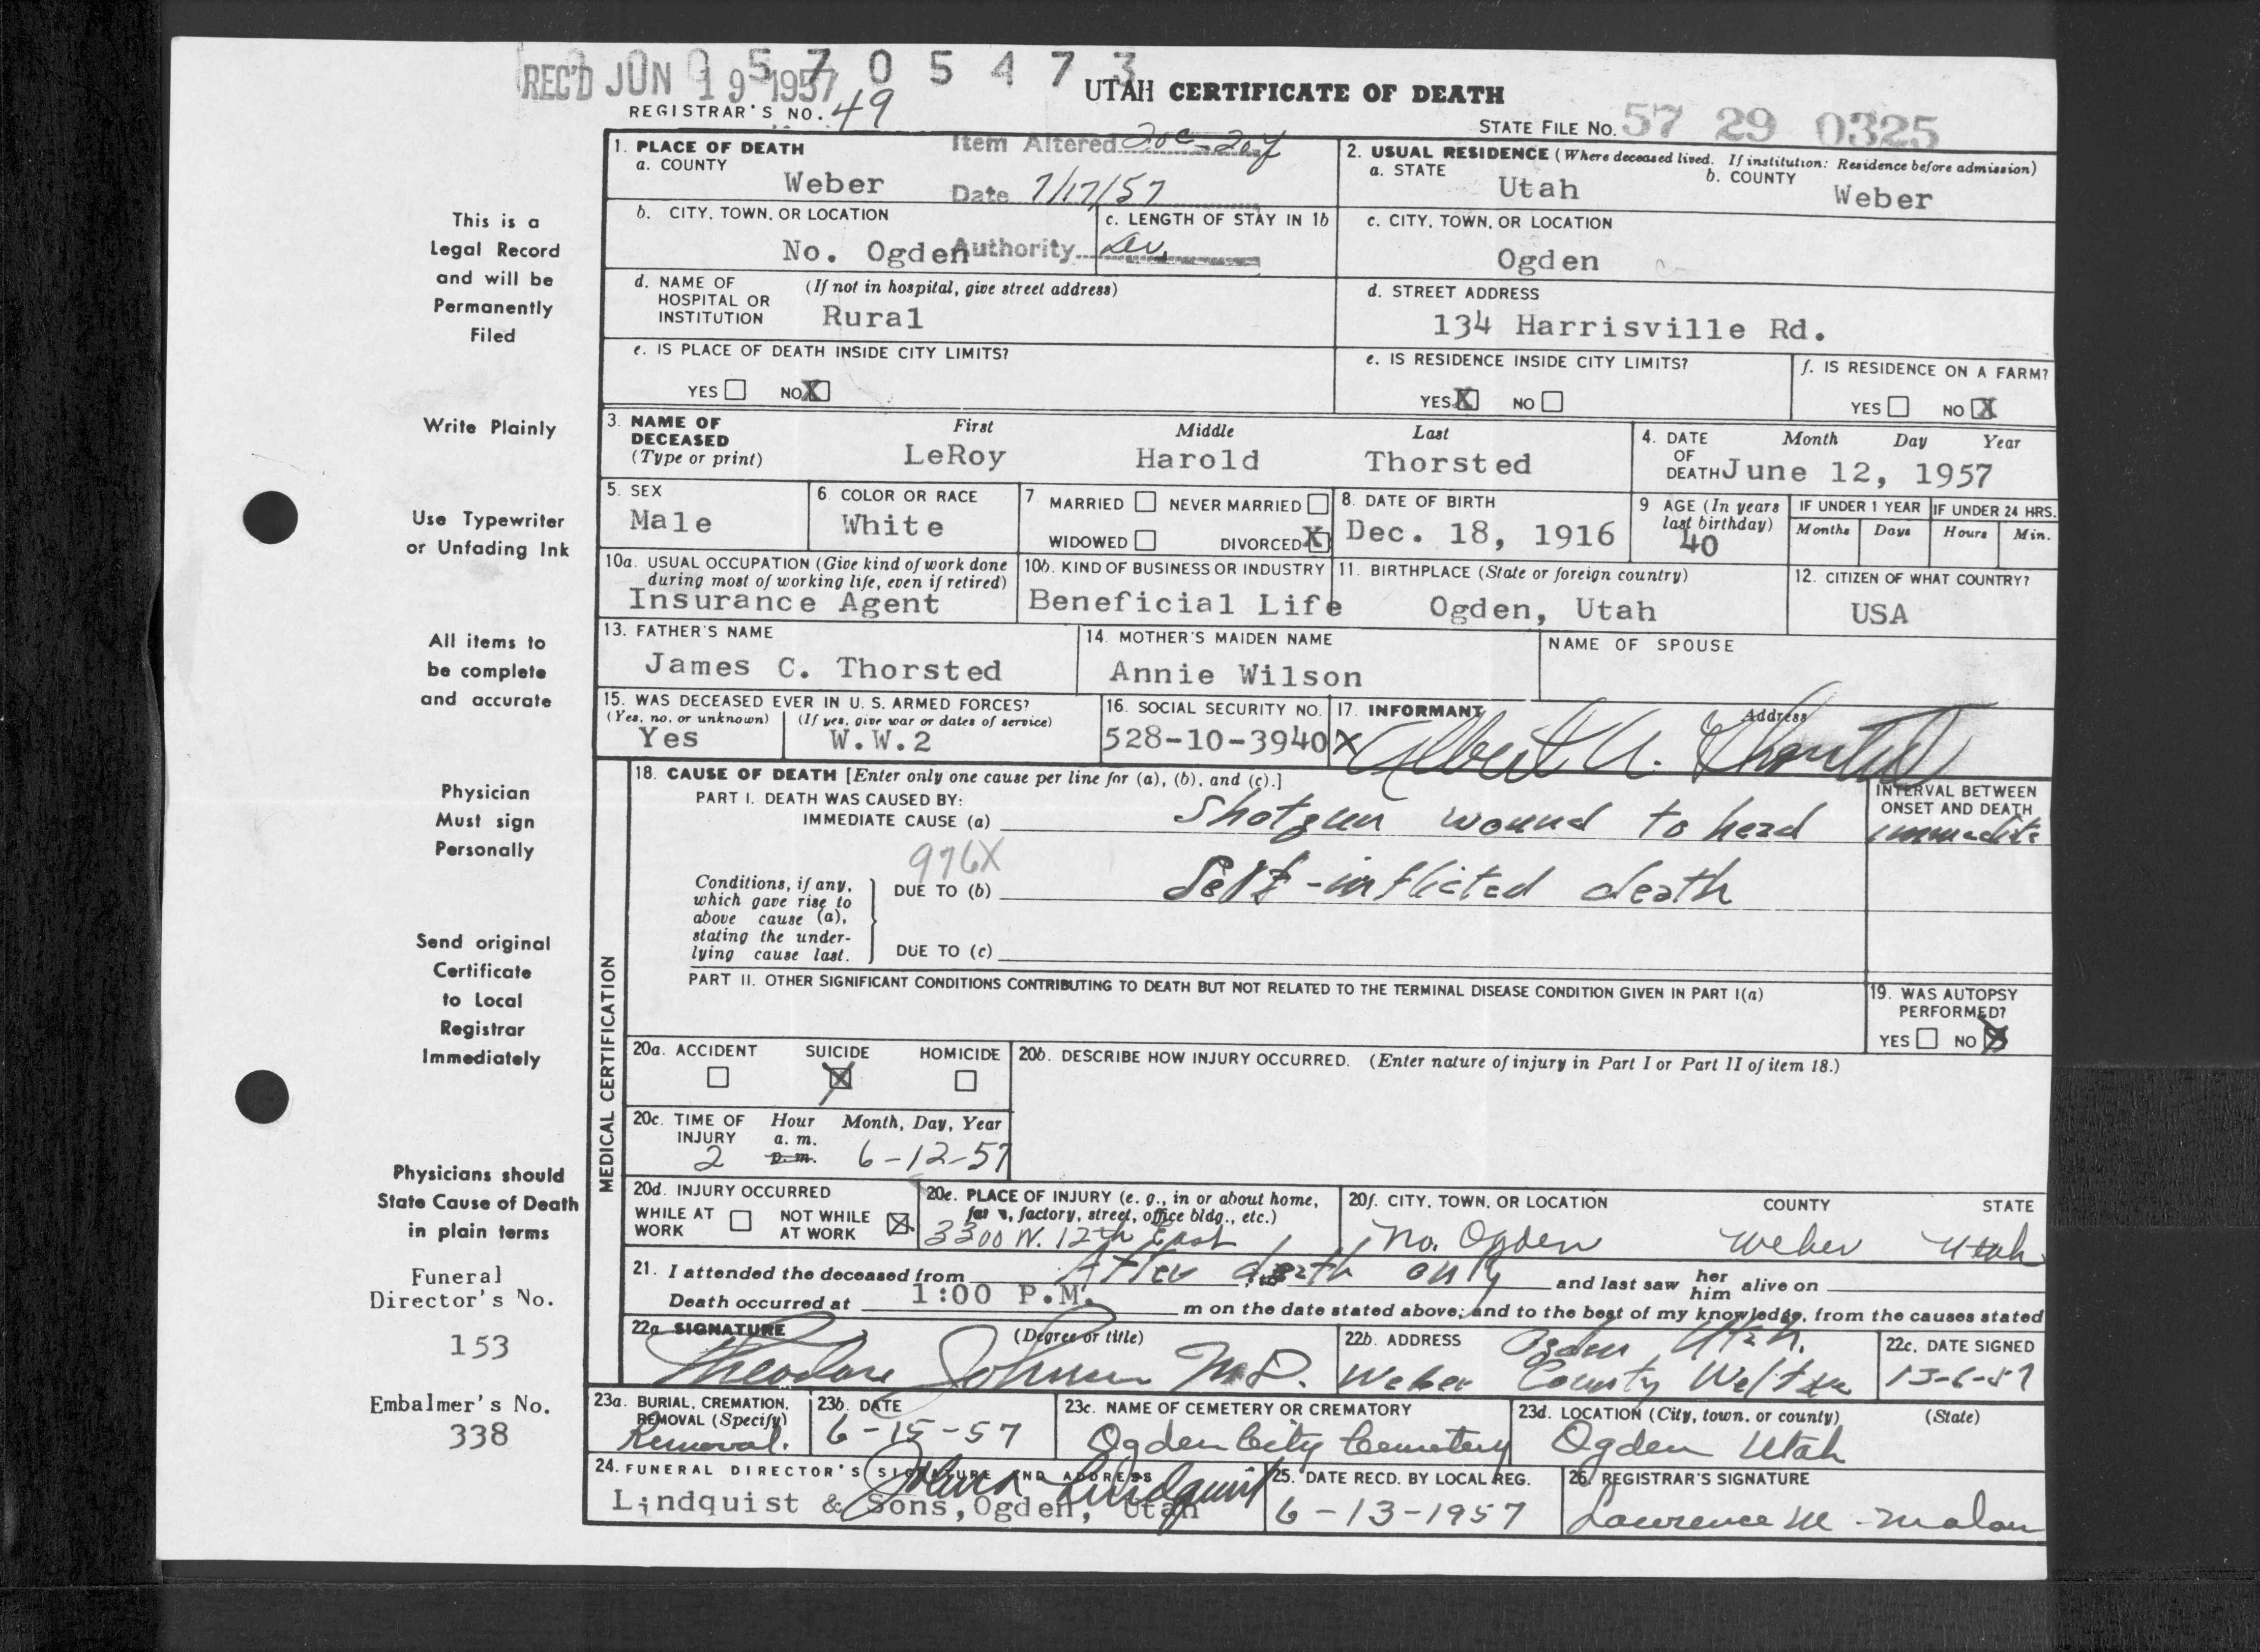 REC'D JUN 19 1957
5 7 0 5 4 7 3
UTAH CERTIFICATE OF DEATH
REGISTRAR'S NO. 49
STATE FILE NO. 57 29 0325
Item Altered 20c-20f
Date 7/17/57
Authority
1. PLACE OF DEATH
a. COUNTY
Weber
2. USUAL RESIDENCE (Where deceased lived. If institution: Residence before admission)
a. STATE
Utah
b. COUNTY
Weber
b. CITY, TOWN, OR LOCATION
No. Ogden
c. LENGTH OF STAY IN 1b
c. CITY, TOWN, OR LOCATION
Ogden
d. NAME OF HOSPITAL OR INSTITUTION
(If not in hospital, give street address)
Rural
d. STREET ADDRESS
134 Harrisville Rd.
e. IS PLACE OF DEATH INSIDE CITY LIMITS?
YES NO X
e. IS RESIDENCE INSIDE CITY LIMITS?
YES X NO
f. IS RESIDENCE ON A FARM?
YES NO X
3. NAME OF DECEASED (Type or print)
First Middle Last
LeRoy Harold Thorsted
4. DATE OF DEATH
Month Day Year
June 12, 1957
5. SEX
Male
6. COLOR OR RACE
White
7. MARRIED NEVER MARRIED
WIDOWED DIVORCED X
8. DATE OF BIRTH
Dec. 18, 1916
9 AGE (In years last birthday)
40
IF UNDER 1 YEAR
Months Days
IF UNDER 24 HRS.
Hours Min.
10a. USUAL OCCUPATION (Give kind of work done during most of working life, even if retired)
Insurance Agent
10b. KIND OF BUSINESS OR INDUSTRY
Beneficial Life
11. BIRTHPLACE (State or foreign country)
Ogden, Utah
12. CITIZEN OF WHAT COUNTRY?
USA
13. FATHER'S NAME
James C. Thorsted
14. MOTHER'S MAIDEN NAME
Annie Wilson
NAME OF SPOUSE
15. WAS DECEASED EVER IN U. S. ARMED FORCES?
(Yes, no, or unknown) (If yes, give war or dates of service)
Yes W.W.2
16. SOCIAL SECURITY NO.
528-10-3940
17. INFORMANT Address
X Albert A. Thorsted
MEDICAL CERTIFICATION
18. CAUSE OF DEATH [Enter only one cause per line for (a), (b), and (c).]
PART I. DEATH WAS CAUSED BY:
IMMEDIATE CAUSE (a) Shotgun wound to head
INTERVAL BETWEEN ONSET AND DEATH
immediate
976X
Conditions, if any, which gave rise to above cause (a), stating the underlying cause last.
DUE TO (b) Self-inflicted death
DUE TO (c)
PART II. OTHER SIGNIFICANT CONDITIONS CONTRIBUTING TO DEATH BUT NOT RELATED TO THE TERMINAL DISEASE CONDITION GIVEN IN PART I(a)
19. WAS AUTOPSY PERFORMED?
YES NO X
20a. ACCIDENT SUICIDE HOMICIDE
X
20b. DESCRIBE HOW INJURY OCCURRED. (Enter nature of injury in Part I or Part II of item 18.)
20c. TIME OF INJURY
Hour Month, Day, Year
a. m.
2 p. m. 6-12-57
20d. INJURY OCCURRED
WHILE AT WORK NOT WHILE AT WORK X
20e. PLACE OF INJURY (e. g., in or about home, farm, factory, street, office bldg., etc.)
3300 N. 12th East
20f. CITY, TOWN, OR LOCATION COUNTY STATE
No. Ogden Weber Utah
21. I attended the deceased from After death only and last saw her him alive on
Death occurred at 1:00 P.M. m on the date stated above; and to the best of my knowledge, from the causes stated
22a SIGNATURE (Degree or title)
Theodore Johnson M.D.
22b. ADDRESS
Ogden Utah.
Weber County Welfare
22c. DATE SIGNED
13-6-57
23a. BURIAL, CREMATION, REMOVAL (Specify)
Removal.
23b. DATE
6-15-57
23c. NAME OF CEMETERY OR CREMATORY
Ogden City Cemetery
23d. LOCATION (City, town, or county) (State)
Ogden Utah
24. FUNERAL DIRECTOR'S SIGNATURE AND ADDRESS
John Lindquist
Lindquist & Sons, Ogden, Utah
25. DATE RECD. BY LOCAL REG.
6-13-1957
26. REGISTRAR'S SIGNATURE
Lawrence M. Malan
This is a
Legal Record
and will be
Permanently
Filed
Write Plainly
Use Typewriter
or Unfading Ink
All items to
be complete
and accurate
Physician
Must sign
Personally
Send original
Certificate
to Local
Registrar
Immediately
Physicians should
State Cause of Death
in plain terms
Funeral
Director's No.
153
Embalmer's No.
338